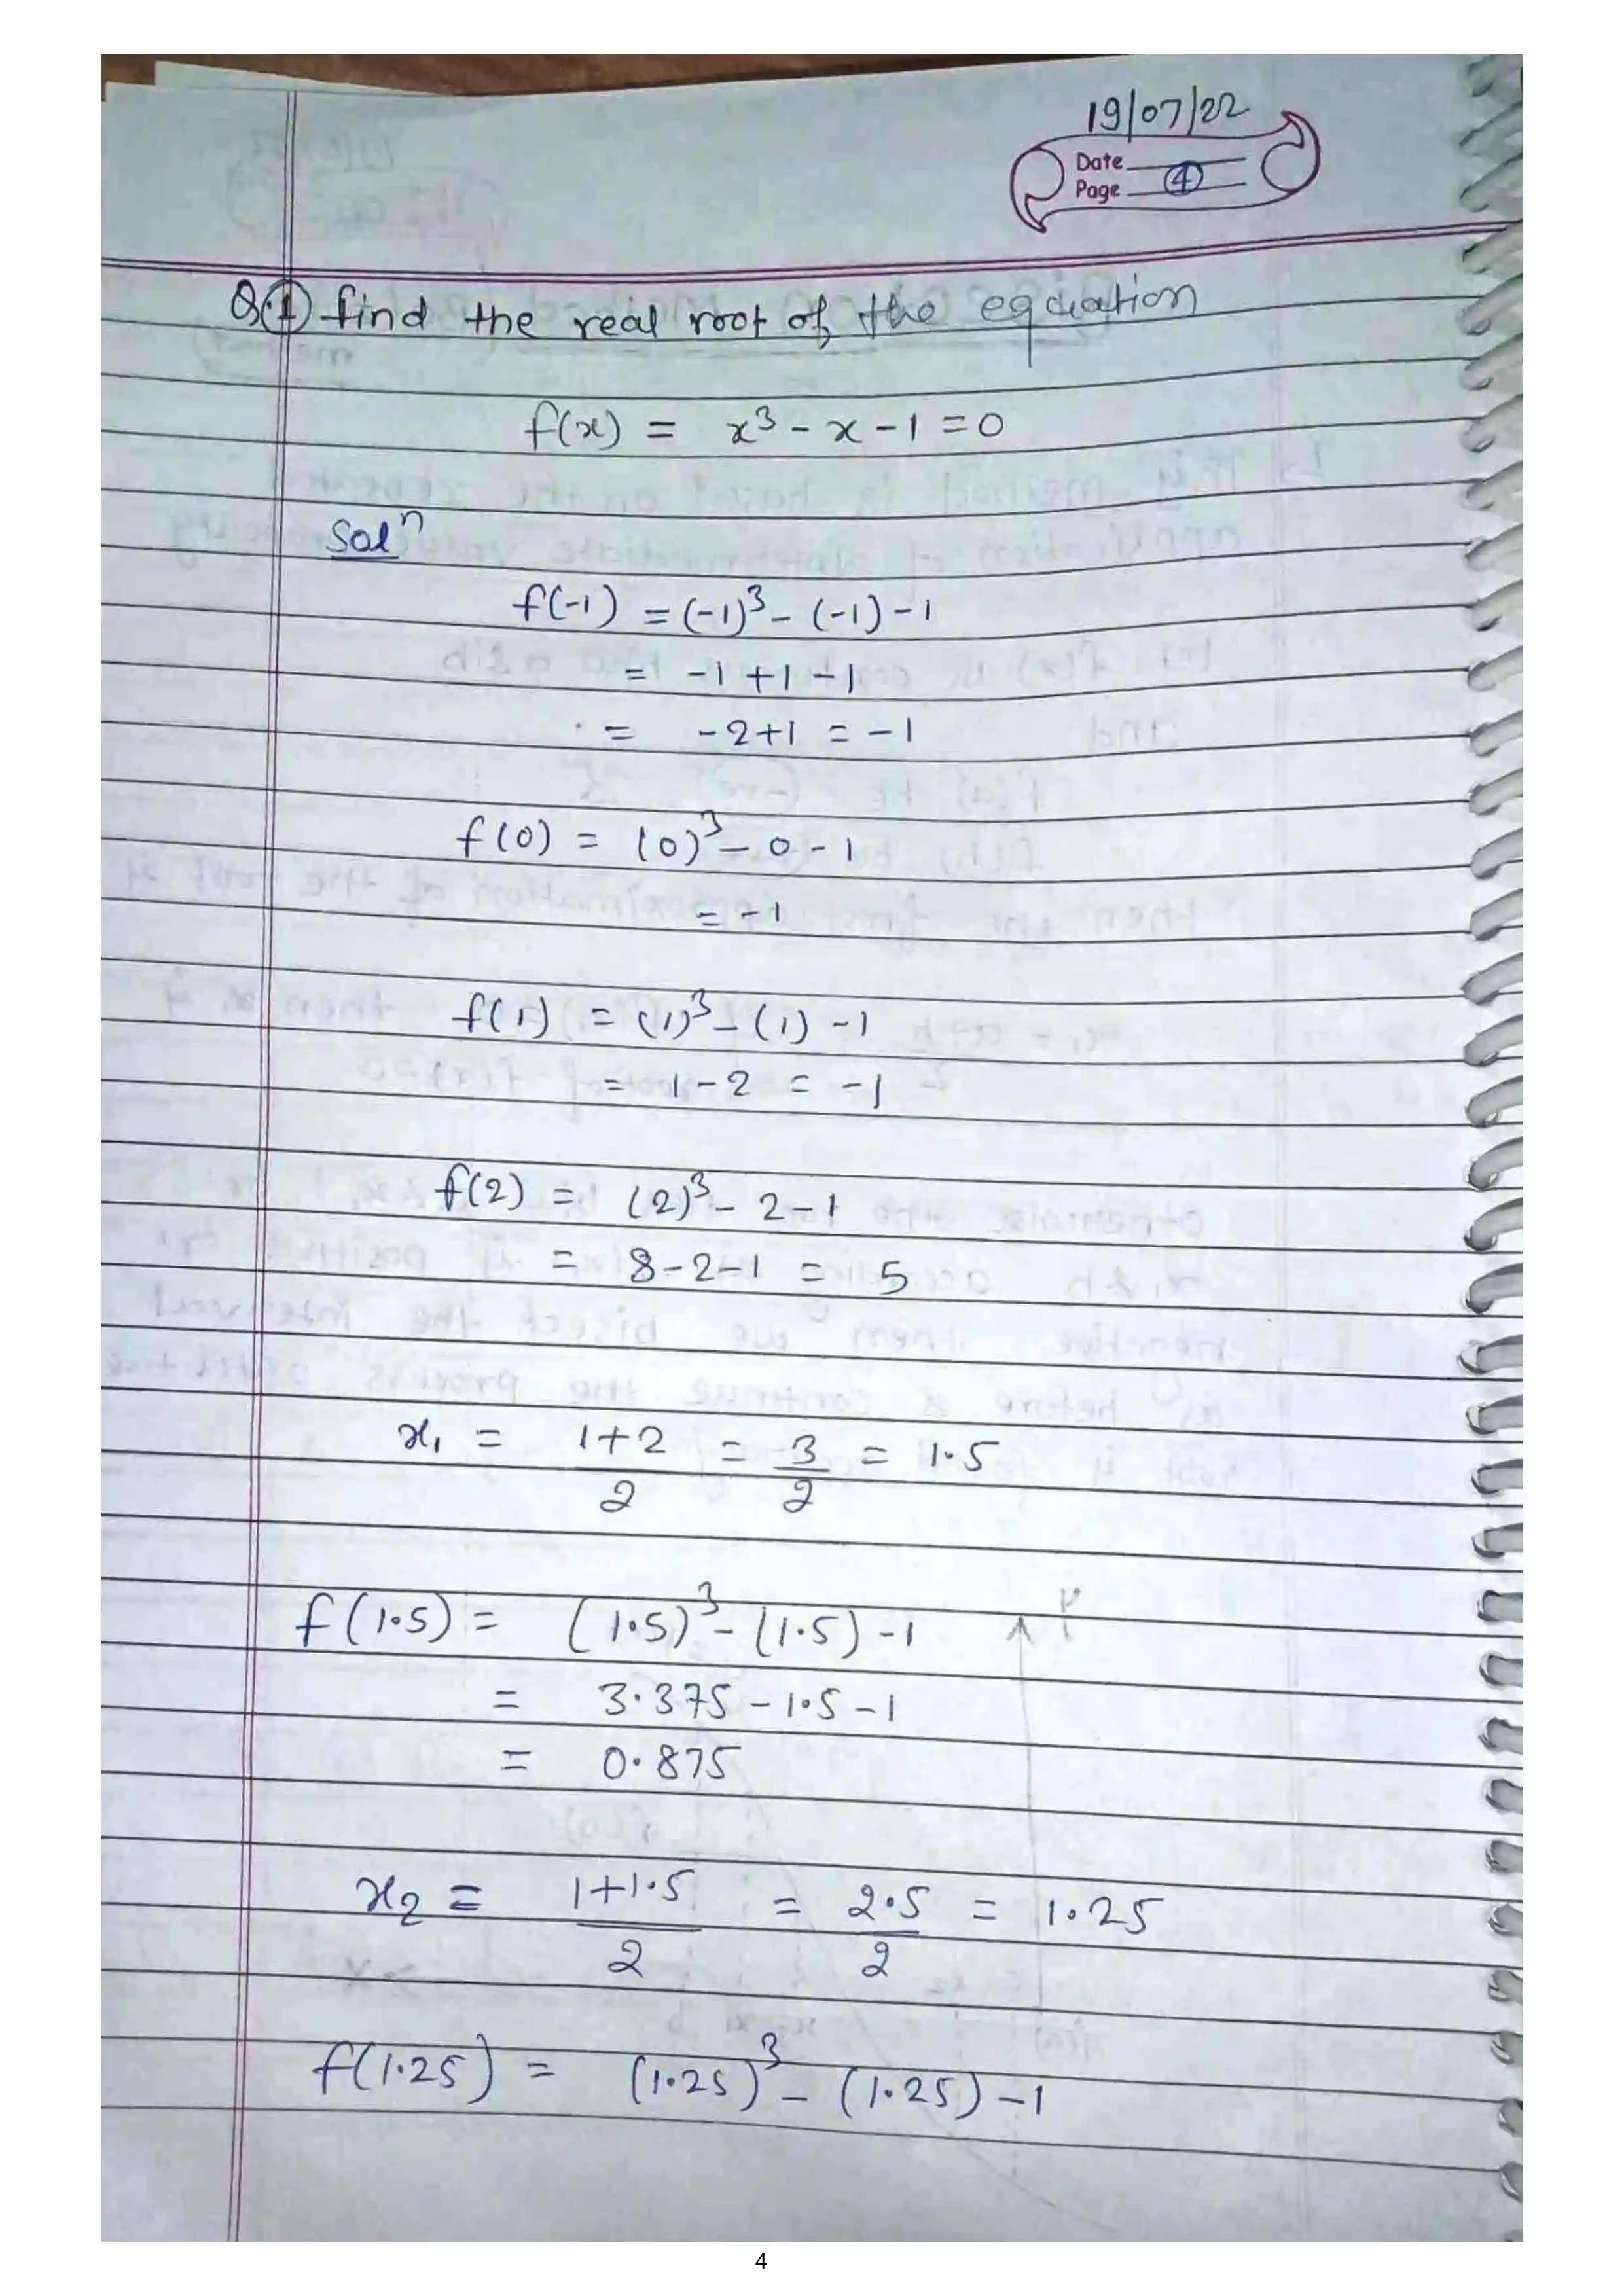 19/07/22
Date
Page 4
Q.1 find the real root of the equation
f(x) = x³ - x - 1 = 0
Solⁿ
f(-1) = (-1)³ - (-1) - 1
= -1 + 1 - 1
= -2+1 = -1
f(0) = (0)³ - 0 - 1
= -1
f(1) = (1)³ - (1) - 1
= 1 - 2 = -1
f(2) = (2)³ - 2 - 1
= 8 - 2 - 1 = 5
x₁ = 1+2/2 = 3/2 = 1.5
f(1.5) = (1.5)³ - (1.5) - 1
= 3.375 - 1.5 - 1
= 0.875
x₂ = 1+1.5/2 = 2.5/2 = 1.25
f(1.25) = (1.25)³ - (1.25) - 1
4